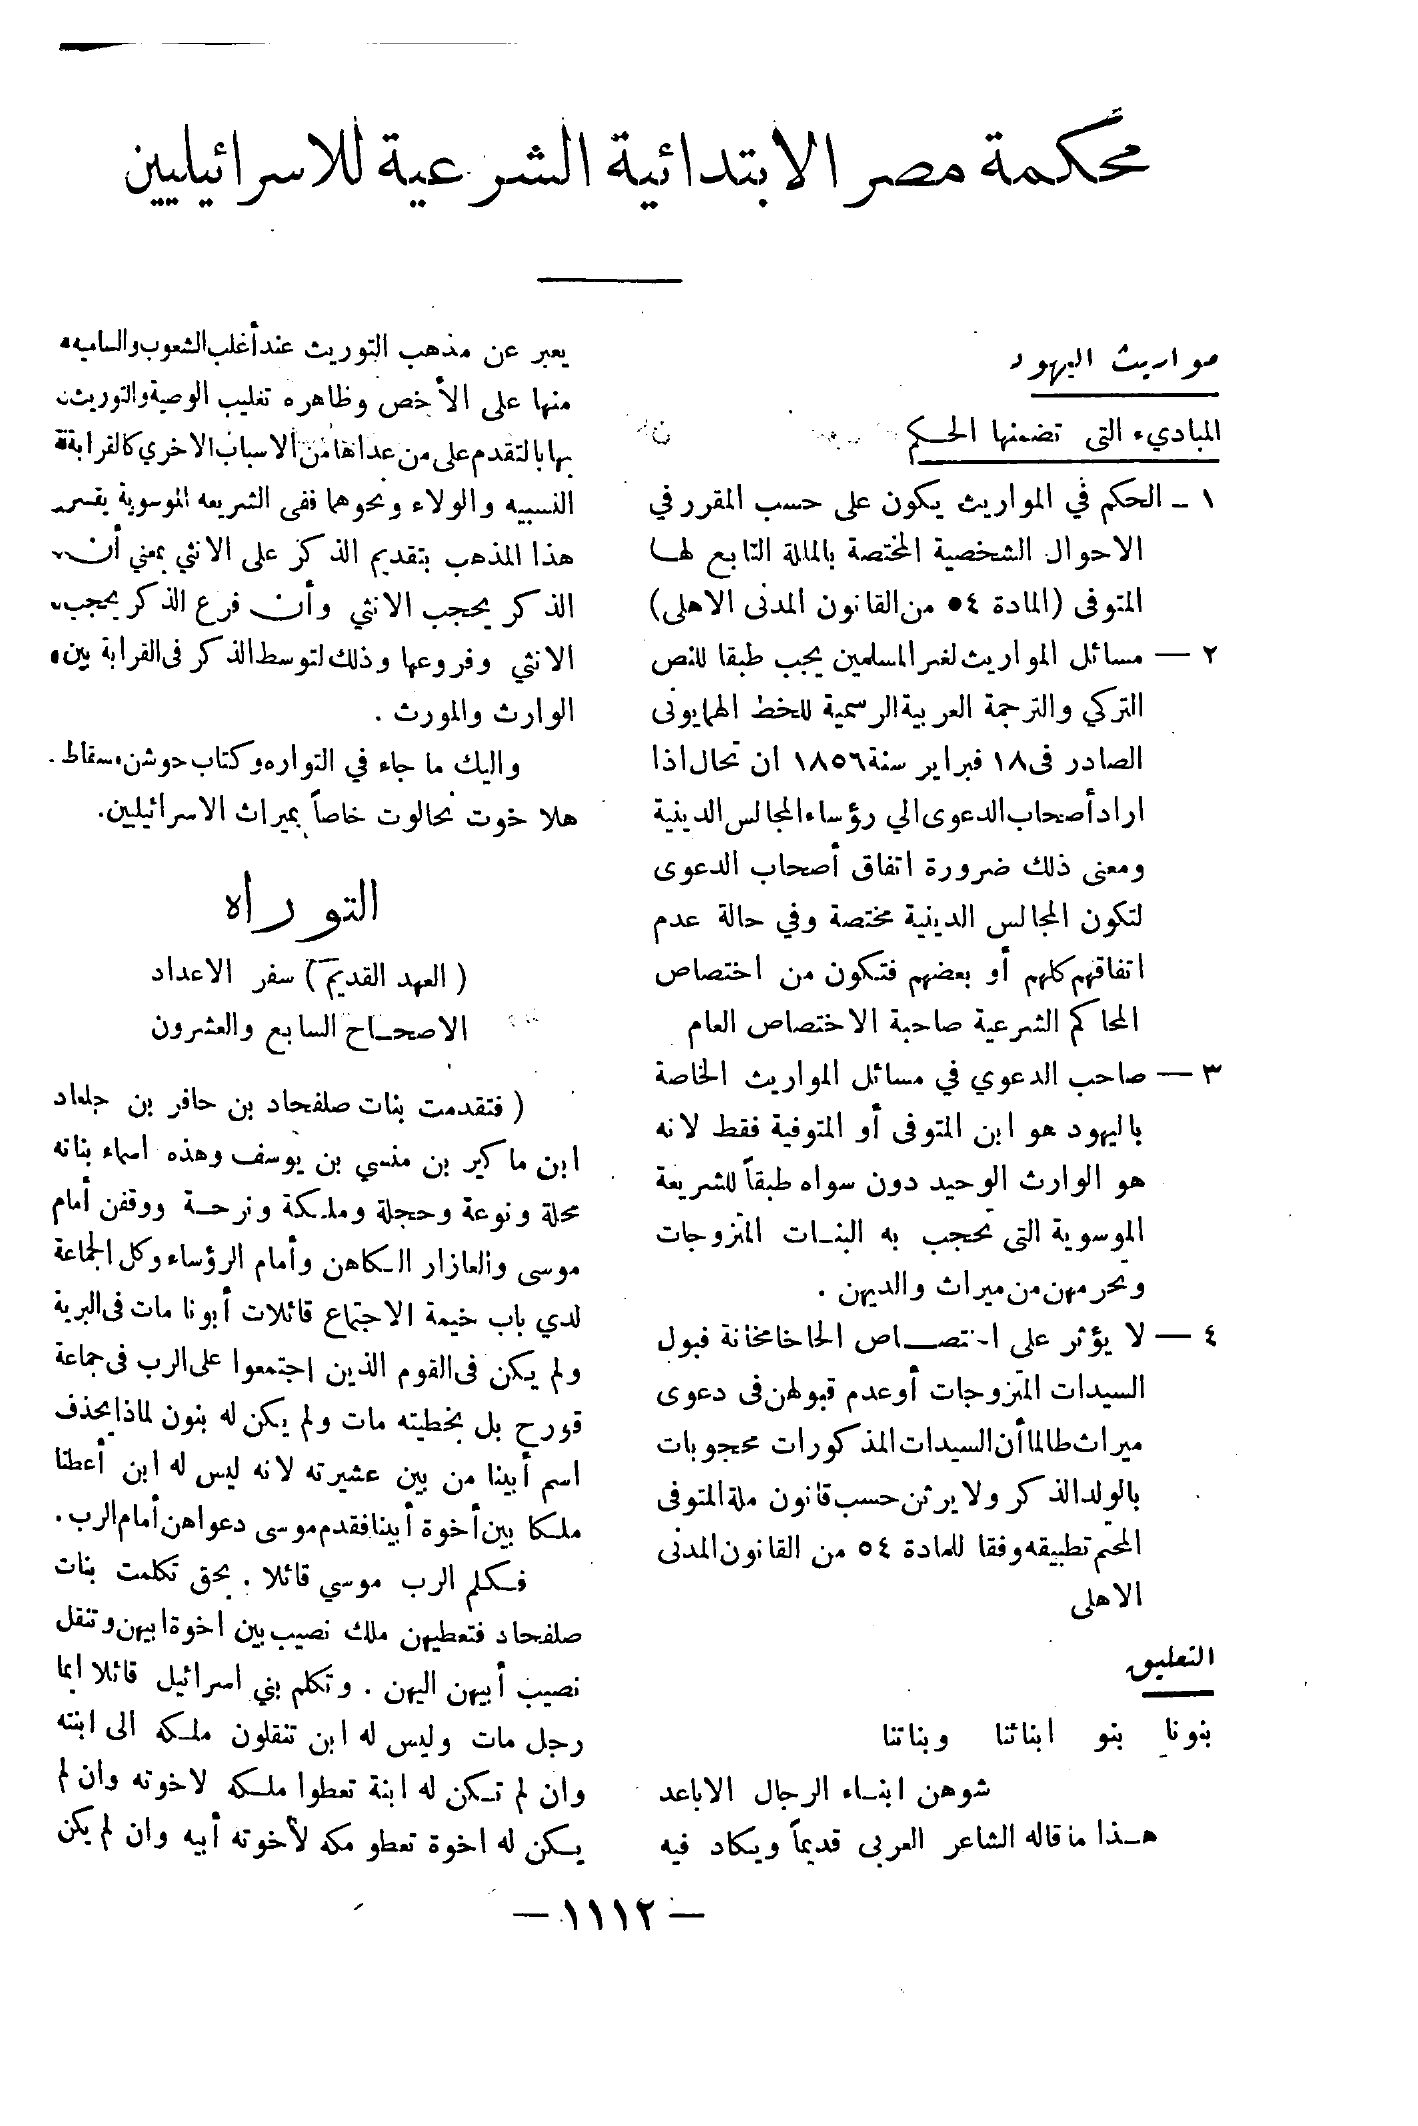 محكمة مصر الابتدائية الشرعية للاسرائيليين
مواريث اليهود
المباديء التى تضمنها الحكم
١ - الحكم في المواريث يكون على حسب المقرر في
الاحوال الشخصية المختصة بالملة التابع لها
المتوفى (المادة ٥٤ من القانون المدنى الاهلى)
٢ — مسائل المواريث لغير المسلمين يجب طبقا للنص
التركي والترجمة العربية الرسمية للخط الهمايونى
الصادر فى ١٨ فبراير سنة ١٨٥٦ ان تحال اذا
اراد أصحاب الدعوى الي رؤساء المجالس الدينية
ومعنى ذلك ضرورة اتفاق أصحاب الدعوى
لتكون المجالس الدينية مختصة وفي حالة عدم
اتفاقهم كلهم أو بعضهم فتكون من اختصاص
المحاكم الشرعية صاحبة الاختصاص العام
٣ — صاحب الدعوي في مسائل المواريث الخاصة
باليهود هو ابن المتوفى أو المتوفية فقط لانه
هو الوارث الوحيد دون سواه طبقاً للشريعة
الموسوية التى تحجب به البنات المتزوجات
وتحرمهن من ميراث والديهن .
٤ — لا يؤثر على اختصاص الحاخامخانة قبول
السيدات المتزوجات أو عدم قبولهن فى دعوى
ميراث طالما أن السيدات المذكورات محجوبات
بالولد الذكر ولا يرثن حسب قانون ملة المتوفى
المحتم تطبيقه وفقا للمادة ٥٤ من القانون المدنى
الاهلى
التعليق
بنونا بنو ابنائنا وبناتنا
شوهن ابناء الرجال الاباعد
هذا ما قاله الشاعر العربى قديماً ويكاد فيه
يعبر عن مذهب التوريث عند أغلب الشعوب والساميه
منها على الأخص وظاهره تغليب الوصية والتوريث
بها بالتقدم على من عداها من الاسباب الاخري كالقرابة
النسبيه والولاء ونحوهما ففى الشريعه الموسوية يفسر
هذا المذهب بتقديم الذكر على الانثي بمعني أن
الذكر يحجب الانثي وأن فرع الذكر يحجب
الانثي وفروعها وذلك لتوسط الذكر فى القرابة بين
الوارث والمورث .
واليك ما جاء في التوراه وكتاب حوشن مسقاط
هلا خوت نحالوت خاصاً بميراث الاسرائيليين.
التوراه
( العهد القديم ) سفر الاعداد
الاصحاح السابع والعشرون
( فتقدمت بنات صلفحاد بن حافر بن جلعاد
ابن ماكير بن منسي بن يوسف وهذه اسماء بناته
محلة ونوعة وحجلة وملكة وترحة ووقفن أمام
موسى والعازار الكاهن وأمام الرؤساء وكل الجماعة
لدي باب خيمة الاجتماع قائلات أبونا مات فى البرية
ولم يكن فى القوم الذين اجتمعوا على الرب فى جماعة
قورح بل بخطيته مات ولم يكن له بنون لماذا يحذف
اسم أبينا من بين عشيرته لانه ليس له ابن أعطنا
ملكا بين أخوة أبينا فقدم موسى دعواهن أمام الرب .
فكلم الرب موسي قائلا . بحق تكلمت بنات
صلفحاد فتعطيهن ملك نصيب بين اخوة ابيهن وتنقل
نصيب أبيهن اليهن . وتكلم بني اسرائيل قائلا ايما
رجل مات وليس له ابن تنقلون ملكه الى ابنته
وان لم تكن له ابنة تعطوا ملكه لاخوته وان لم
يكن له اخوة تعطو مكه لأخوته أبيه وان لم يكن
— ١١١٢ —